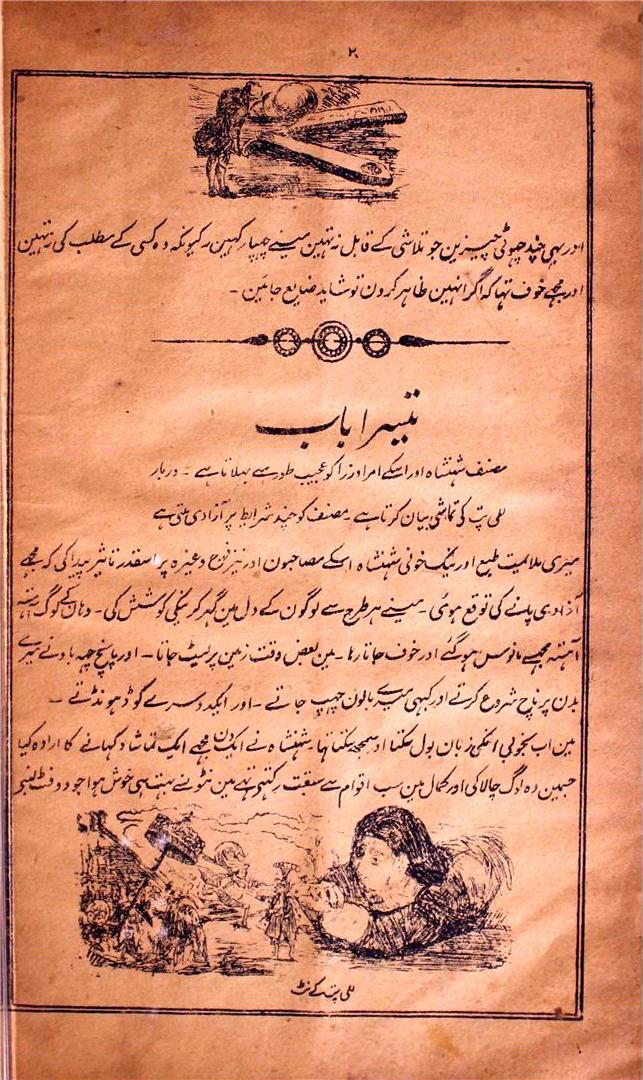 ۲۰
اور یہی چند چھوٹی چیزین جو تلاشی کے قابل نہ تہین مینے چہپا رکہین کیونکہ وہ کسی کے مطلب کی نہ تہین
اور مجہے خوف تہا کہ اگر انہین ظاہر کرون تو شاید ضایع جائین ۔
تیسرا باب
مصنف شہنشاہ اور اسکے امرا و وزرا کو عجیب طور سے بہلاتا ہے ۔ دربار
للی پٹ کی تماشی بیان کرتا ہے ۔ مصنف کو چند شرایط پر آزادی ملتی ہے
میری ملائمیت طبع اور نیک خوئی شہنشاہ اسکے مصاحبون اور نیز فوج وغیرہ پر اسقدر تاثیر پیدا کی کہ مجہے
آزادی پانے کی توقع ہوئی ۔ مینے ہر طرح سے لوگون کے دل مین گہر کرنیکی کوشش کی ۔ وہان کے لوگ رفتہ
آہستہ مجہسے مانوس ہو گئے اور خوف جاتا رہا ۔ مین بعض وقت زمین پر لیٹ جاتا ۔ اور پانچ چہہ بونے میرے
بدن پر ناچ شروع کرتے اور کبہی میرے بالون چہپ جاتے ۔ اور ایک دوسرے کو ڈہونڈتے ۔
مین اب بخوبی انکی زبان بول سکتا اور سمجہہ سکتا تہا شہنشاہ نے ایکدن مجہے ایک تماشا دکہانے کا ارادہ کیا
جسمین وہ لوگ چالاکی اور کمال مین سب اقوام سے سبقت رکہتے تہے مین نٹون سے بہت ہی خوش ہوا جو دو فٹ
للی پٹ کے نٹ